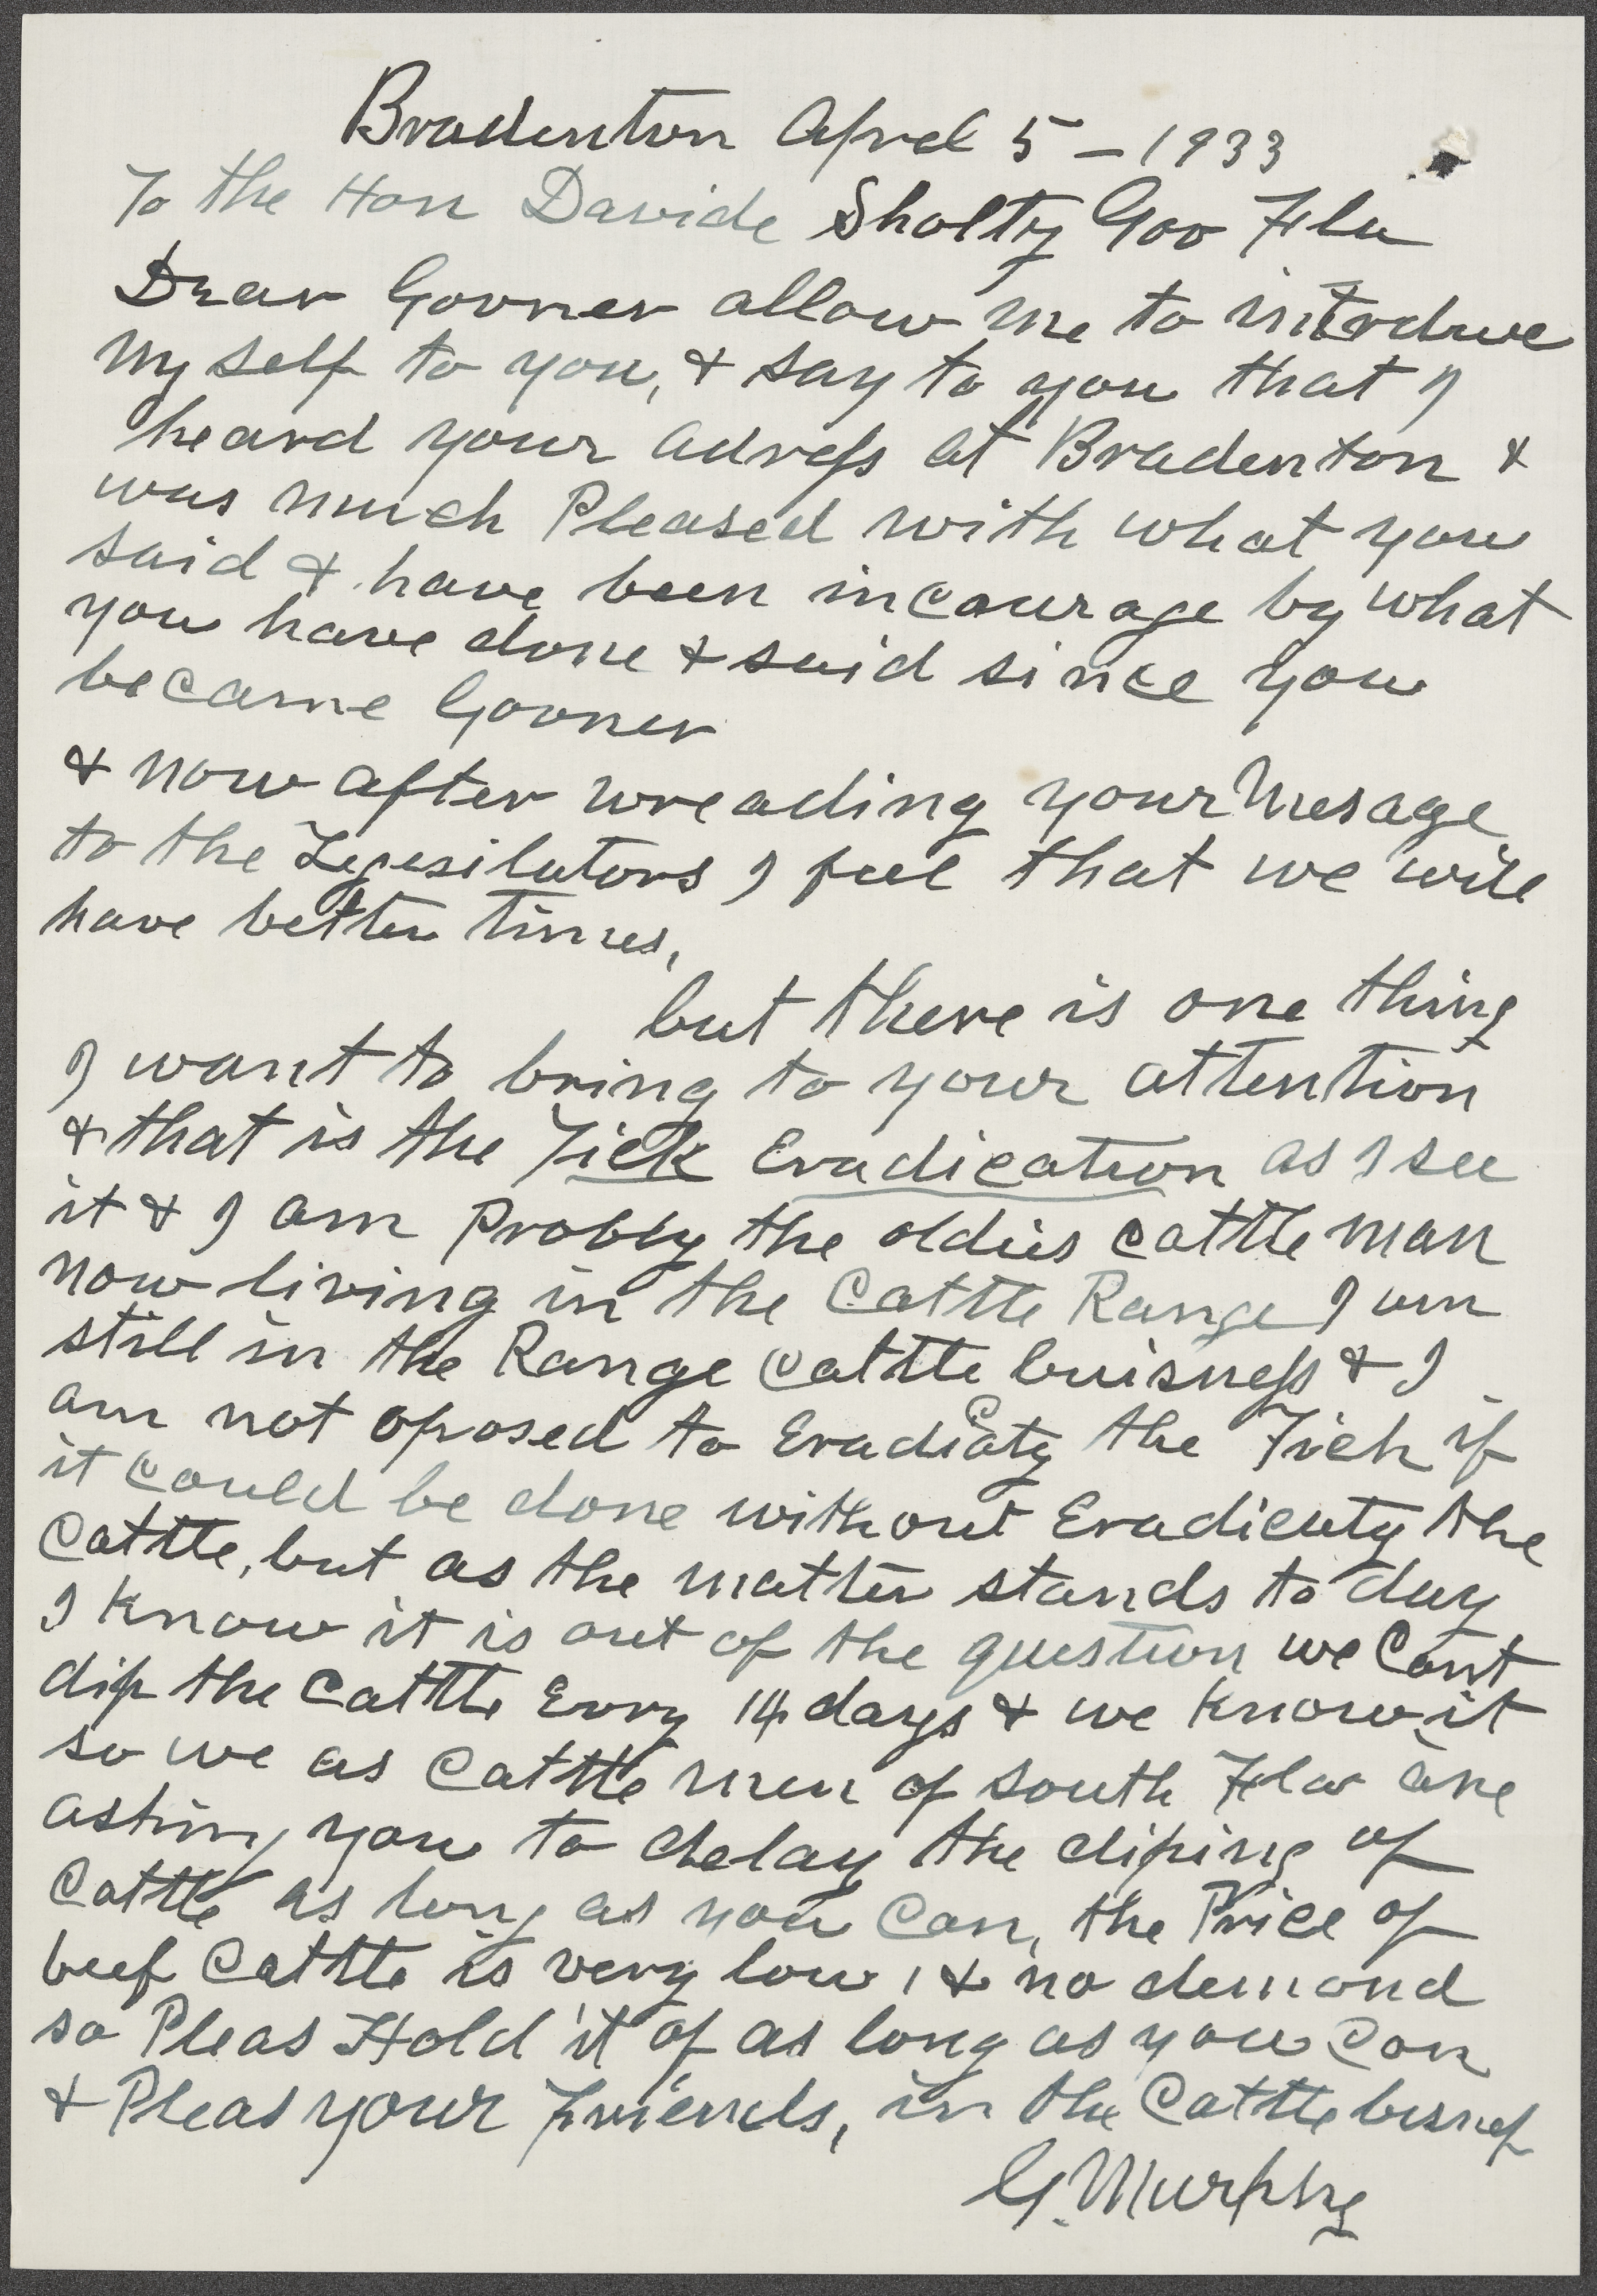 Bradenton Aprel 5 - 1933
To the Hon Davide Sholtz Gov Fla
Dear Govner allow me to intrduce
my self to you, & say to you that I
heard your adress at Bradenton &
was much Pleased with what you
said & have been incourage by what
you have done & said since you
became Govner
& now after wreading your Mesage
to the Legesilutors I feel that we will
have better times,
but there is one thing
I want to bring to your attention
& that is the Tick Eradication as I see
it & I am Probly the oldies cattle man
now living in the Cattle Range I am
still in the Range Cattle buisness & I
am not oposed to Eradicaty the Tick if
it could be done without Eradicaty the
Cattle, but as the matter stands to day
I know it is out of the question we Cant
dip the Cattle Evry 14 days & we know it
so we as Cattle men of South Fla are
asking you to delay the diping of
Cattle as long as you Can, the Price of
beef Cattle is very low, & no demand
so Pleas Hold it of as long as you Can
& Pleas your Friends, in the Cattle
G. Murphy